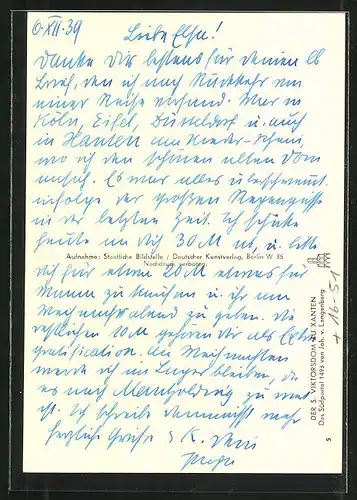 6.XII.39
Liebe Else!
Danke Dir bestens für deinen lb
Brief, den ich nach Rückkehr von
einer Reise vorfand. War in
Köln, Eifel, Düsseldorf u. auch
in Xanten am Nieder-Rhein,
wo ich den schönen alten Dom
ansah. Es war alles überschwemmt
infolge der großen Regengüsse
in der letzten Zeit. Ich schicke
heute an Dich 30 M ab, u. bitte
Aufnahme: Staatliche Bildstelle / Deutscher Kunstverlag, Berlin W 35
Nachdruck verboten
Dich für etwa 20 M etwas für
Mama zu kaufen u. ihr am
Weihnachtsabend zu geben. Die
restlichen 10 M gehören Dir als Extra
gratifikation. An Weihnachten
werde ich im Lager bleiben, da
es nach zu weit
ist. Ich schreibe demnächst mehr
Herzliche Grüße & K. Dein
DER S. VIKTORSDOM ZU XANTEN
Das Südportal 1493 von Joh. v. Langenberg
5
+ 16 51